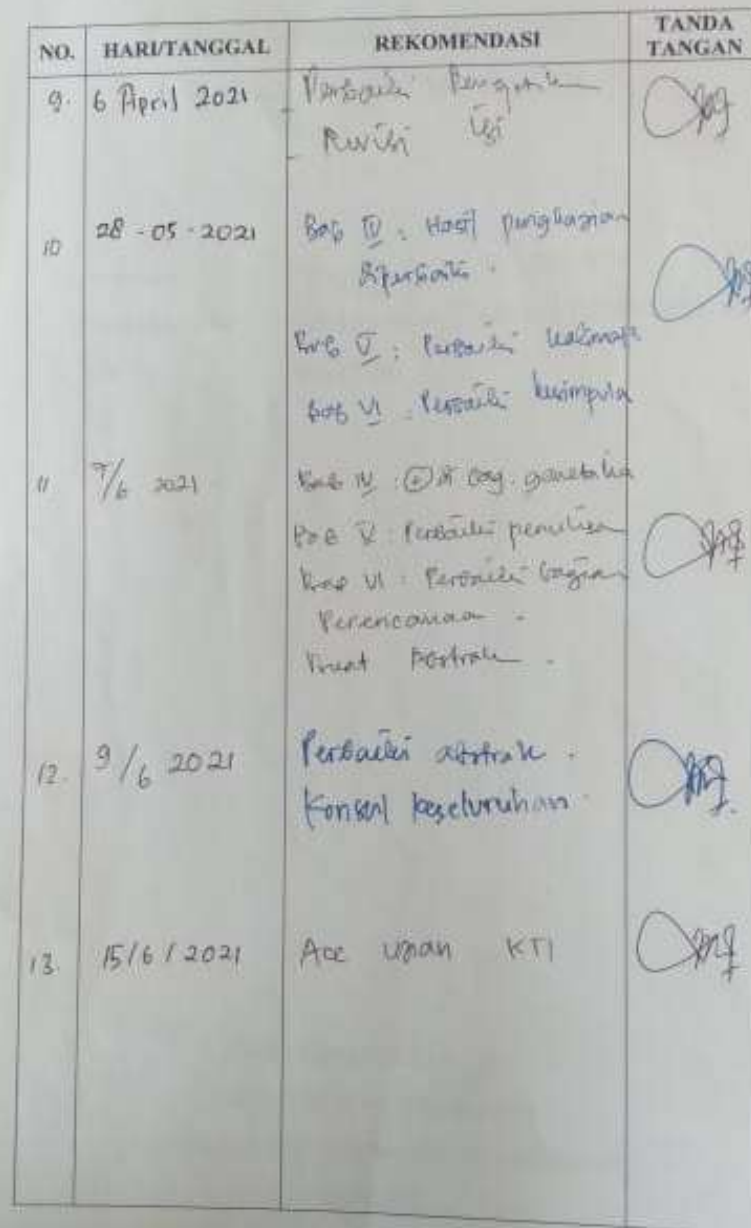 NO. HARI/TANGGAL REKOMENDASI TANDA TANGAN
9. 6 April 2021 - Perbaiki
- Revisi isi
10 28-05-2021 Bab IV : Hasil pengkajian
diperbaiki.
Bab V : Perbaiki kalimat
Bab VI : Perbaiki kesimpula
11 7/6 2021 Bab IV : + di
Bab V : Perbaiki penulisan
Bab VI : Perbaiki bagian
Perencanaan.
Buat Abstrak.
12. 9/6 2021 Perbaiki abstrak.
Konsul keseluruhan.
13. 15/6/2021 Acc Ujian KTI